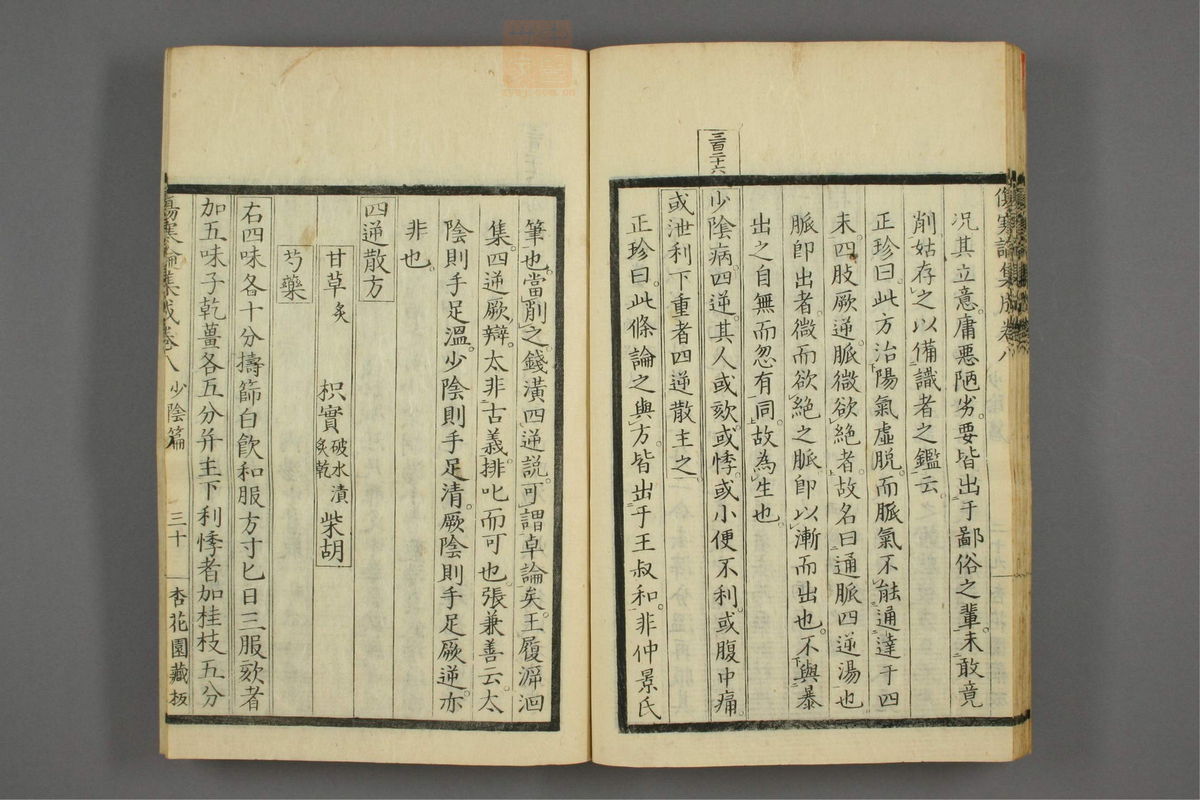 傷寒論集成卷八
況其立意。庸惡陋劣。要皆出于鄙俗之輩。未敢竟
削姑存之以備識者之鑑云
正珍曰。此方治陽氣虛脱。而脈氣不能通達于四
末。四肢厥逆。脈微欲絶者。故名曰通脈四逆湯也
脈卽出者。微而欲絶之脈卽以漸而出也。不與暴
出之自無而忽有同。故為生也
三百二十六
少陰病。四逆。其人或欬。或悸。或小便不利。或腹中痛。
或泄利下重者四逆散主之
正珍曰。此條論之與方。皆出于王叔和。非仲景氏
筆也。當削之。錢潢四逆説。可謂卓論矣。王履溯洄
集。四逆厥辯。太非古義。排叱而可也。張兼善云。太
陰則手足溫。少陰則手足清。厥陰則手足厥逆。亦
非也
四逆散方
甘草炙 枳實破水漬炙乾 柴胡
芍藥
右四味各十分擣篩白飮和服方寸匕日三服欬者
加五味子乾薑各五分并主下利悸者加桂枝五分
傷寒論集成卷八 少陰篇 三十 杏花園藏板